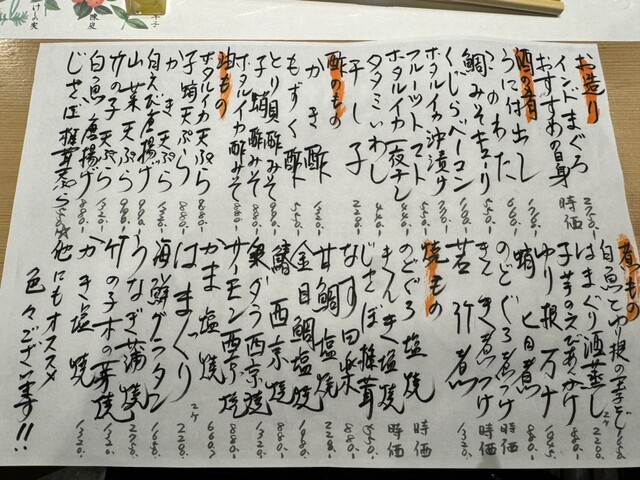 お造り
インドまぐろ 2750.-
おすすめの白身 時価
酒の肴
うに付出し 1760.-
このわた 660.-
鯛みそキューリ 990.-
くじらベーコン
ホタルイカ沖漬け 550.-
フルーツトマト
ホタルイカ一夜干し
タタミいわし 440.-
干し子 2200.-
酢のもの
かき酢 1320.-
もずく酢 550.-
とり貝酢みそ 990.-
子鞘酢みそ
ホタルイカ酢みそ 880.-
油もの
ホタルイカ天ぷら 880.-
子鞘天ぷら
かき天ぷら 1320.-
白えび唐揚げ
山菜天ぷら 990.-
竹の子天ぷら
白魚唐揚げ 1320.-
じさぼ椎茸天ぷら
煮もの
白魚とゆり根の玉子とじ
はまぐり酒蒸し 2ケ 2200.-
子芋のえびあんかけ 880.-
ゆり根万十
蛸旨煮 880.-
のどぐろ煮つけ 時価
きんき煮つけ 時価
若竹煮 1320.-
焼もの
のどぐろ塩焼 時価
きんき塩焼 時価
じさぼ椎茸 550.-
なす田楽 880.-
甘鯛塩焼 2200.-
金目鯛塩焼
鰆西京焼 880.-
銀ダラ西京焼 1320.-
サーモン西京焼 880.-
かま塩焼 660.-
はまぐり 2ケ 2200.-
海鮮グラタン
うなぎ蒲焼 2750.-
竹の子木の芽焼 1320.-
かき塩焼 1320.-
他にもオススメ
色々ございます!!